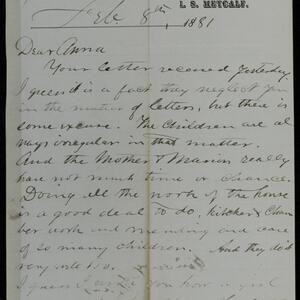 L. S. METCALF.
Feb. 8th, 1881
Dear Anna
Your letter received yesterday.
I guess it is a fact they neglect you
in the matter of letters, but there is
some excuse. The Children are al
ways irregular in that matter.
And the Mother & Marion really
have not much time or chance.
Doing all the work of the house
is a good deal to do, kitchen & Cham
ber work and mending and care
of so many children. And they do it
very
I guess you how a girl